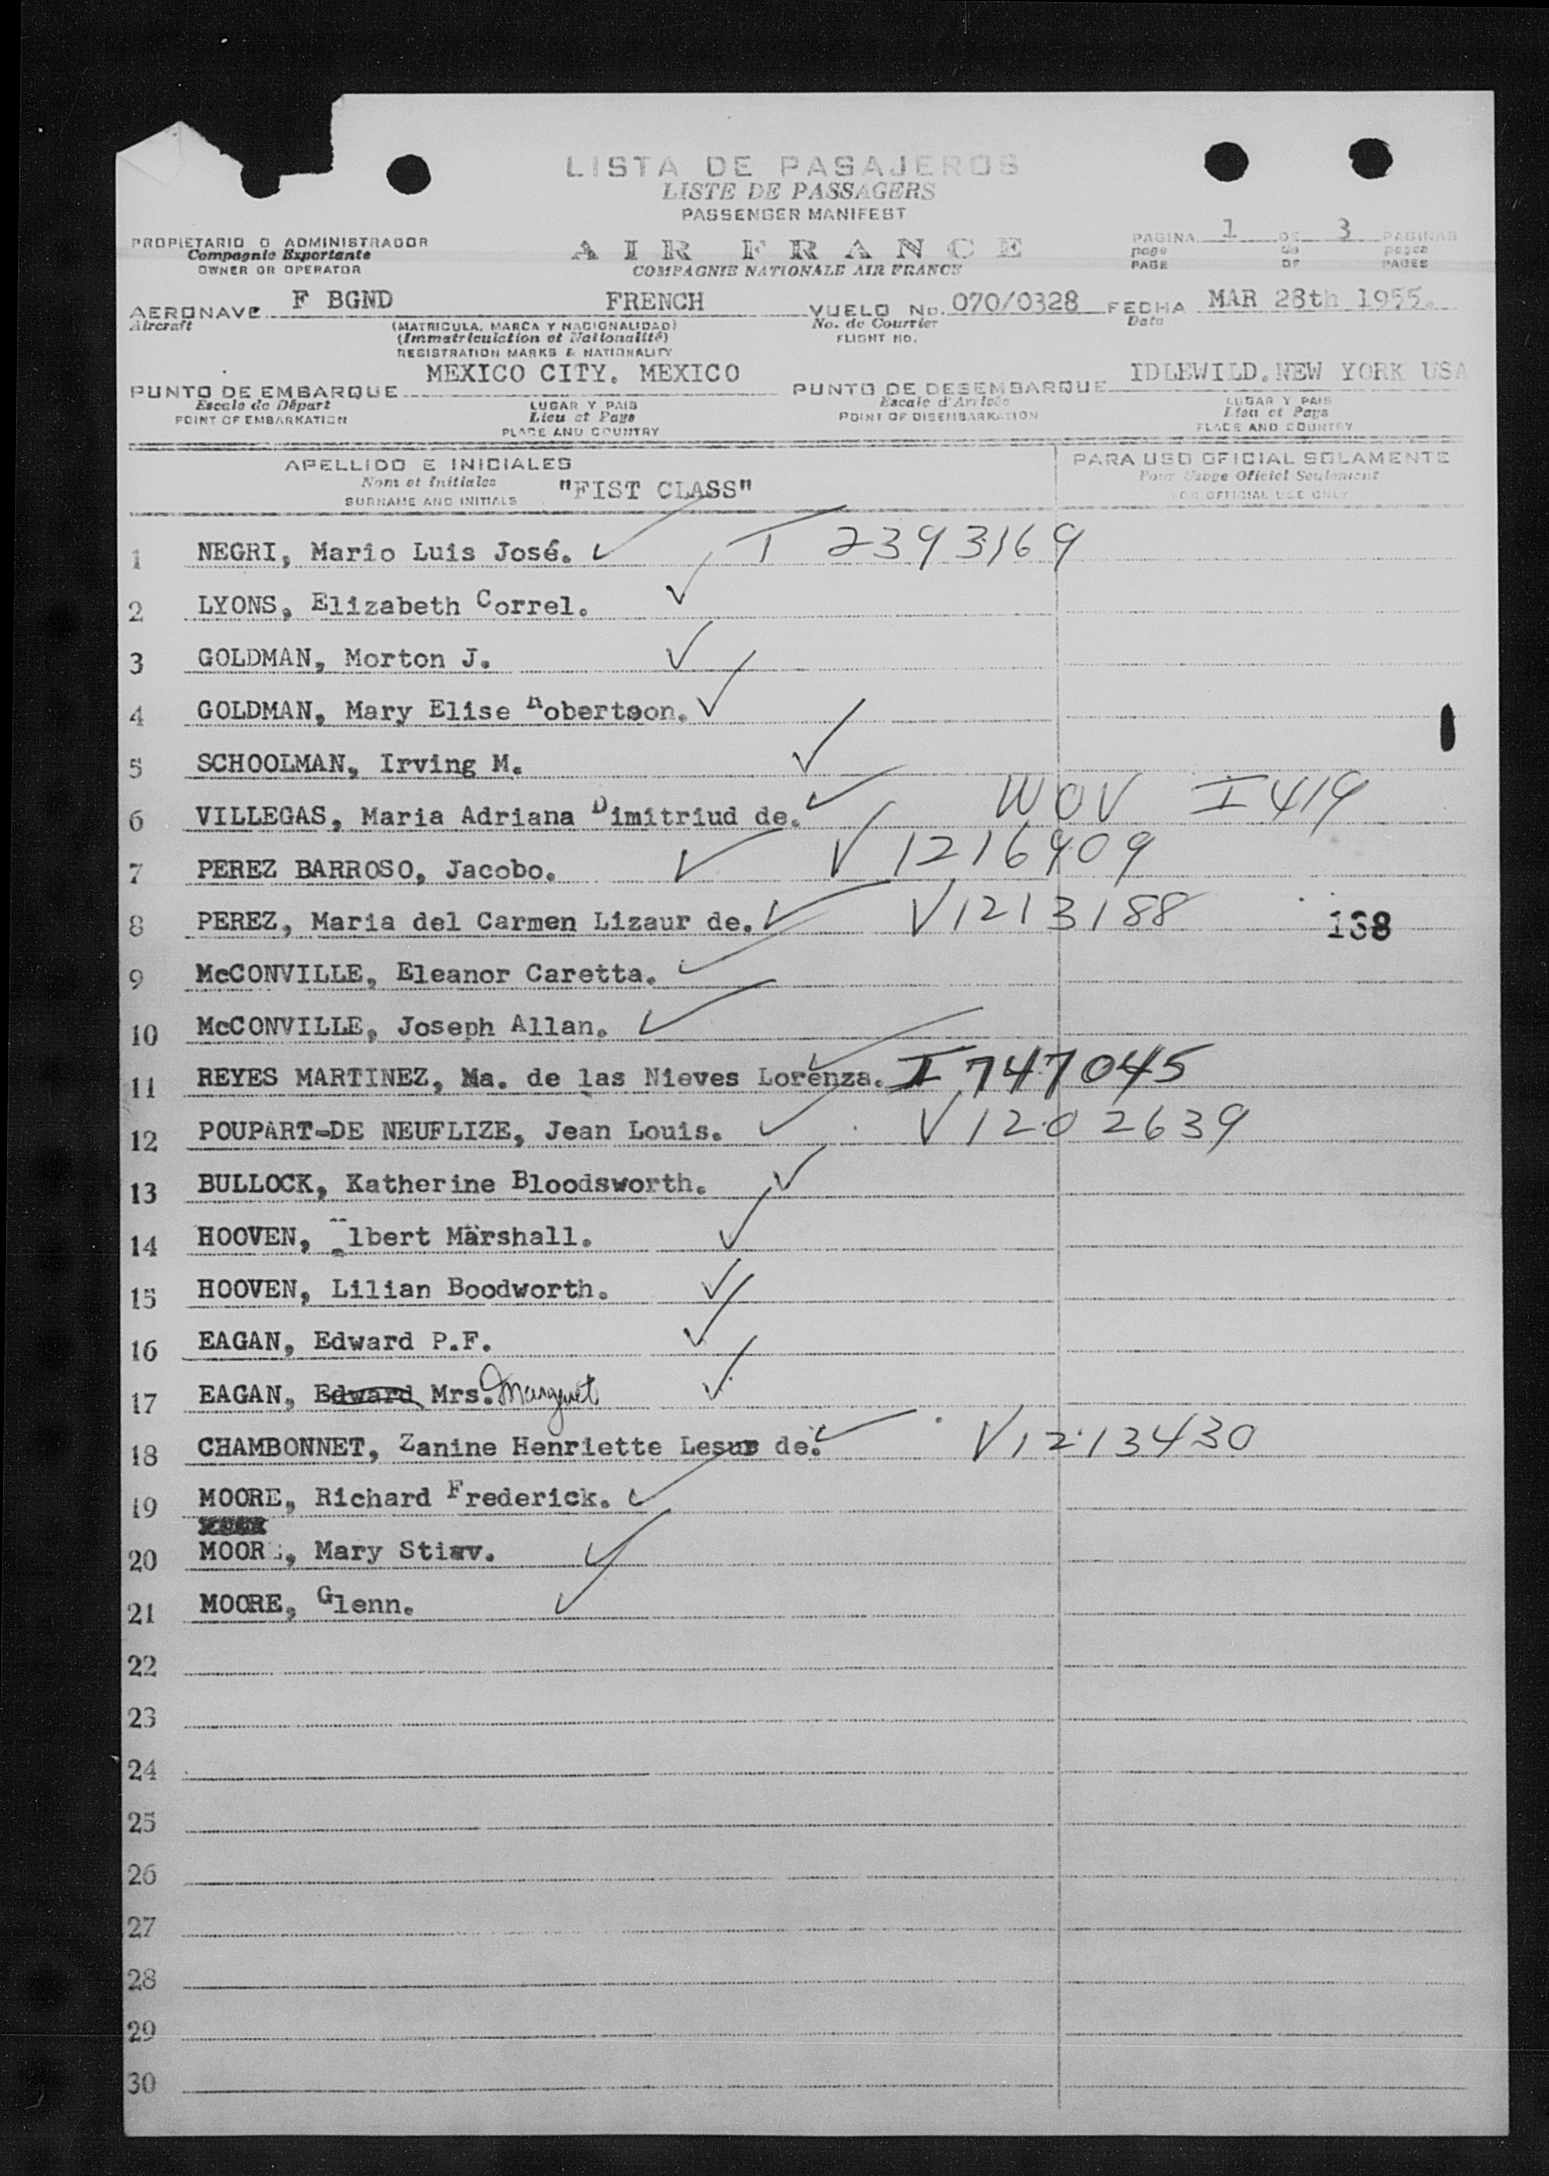 LISTA DE PASAJEROS
LISTE DE PASSAGERS
PASSENGER MANIFEST
PROPIETARIO O ADMINISTRADOR
Compagnie Exportante
OWNER OR OPERATOR
AIR FRANCE
COMPAGNIE NATIONALE AIR FRANCE
PAGINA 1 DE 3 PAGINAS
page de pages
PAGE OF PAGES
AERONAVE F BGND FRENCH VUELO No. 070/0328 FECHA MAR 28th 1955.
Aircraft (MATRICULA, MARCA Y NACIONALIDAD) No. de Courrier Date
(Immatriculation et Nationalité) FLIGHT NO.
REGISTRATION MARKS & NATIONALITY
PUNTO DE EMBARQUE MEXICO CITY. MEXICO PUNTO DE DESEMBARQUE IDLEWILD.NEW YORK USA
Escale de Départ LUGAR Y PAIS Escale d'Arrivée LUGAR Y PAIS
POINT OF EMBARKATION Lieu et Pays POINT OF DISEMBARKATION Lieu et Pays
PLACE AND COUNTRY PLACE AND COUNTRY
APELLIDO E INICIALES PARA USO OFICIAL SOLAMENTE
Nom et Initiales "FIST CLASS" Pour Usage Officiel Seulement
SURNAME AND INITIALS FOR OFFICIAL USE ONLY
1 NEGRI, Mario Luis José. ✓ T 2393169
2 LYONS, Elizabeth Correl. ✓
3 GOLDMAN, Morton J. ✓
4 GOLDMAN, Mary Elise Robertson. ✓
5 SCHOOLMAN, Irving M. ✓
6 VILLEGAS, Maria Adriana Dimitriud de. ✓ WOV I 419
7 PEREZ BARROSO, Jacobo. ✓ V 1216909
8 PEREZ, Maria del Carmen Lizaur de. ✓ V1213188 138
9 McCONVILLE, Eleanor Caretta. ✓
10 McCONVILLE, Joseph Allan. ✓
11 REYES MARTINEZ, Ma. de las Nieves Lorenza. ✓ I 747045
12 POUPART-DE NEUFLIZE, Jean Louis. ✓ V1202639
13 BULLOCK, Katherine Bloodsworth. ✓
14 HOOVEN, lbert Marshall. ✓
15 HOOVEN, Lilian Boodworth. ✓
16 EAGAN, Edward P.F. ✓
17 EAGAN, Edward Mrs. Marguet ✓
18 CHAMBONNET, Zanine Henriette Lesur de. ✓ V1213430
19 MOORE, Richard Frederick. ✓
20 MOORE, Mary Stiav. ✓
21 MOORE, Glenn. ✓
22
23
24
25
26
27
28
29
30